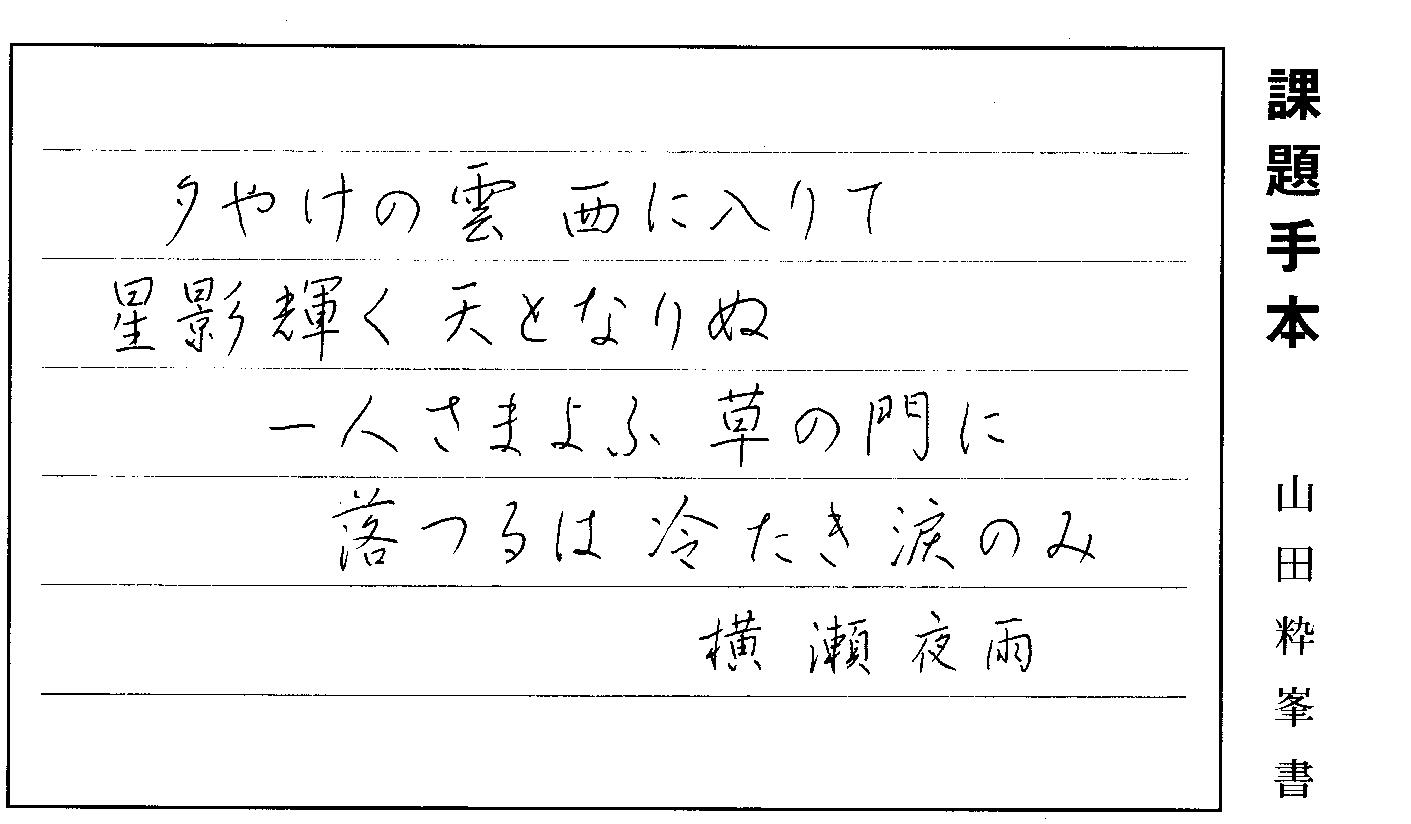 課題手本 山田粋峯書
夕やけの雲 西に入りて
星影輝く 天となりぬ
一人さまよふ 草の門に
落つるは 冷たき涙のみ
横瀬夜雨